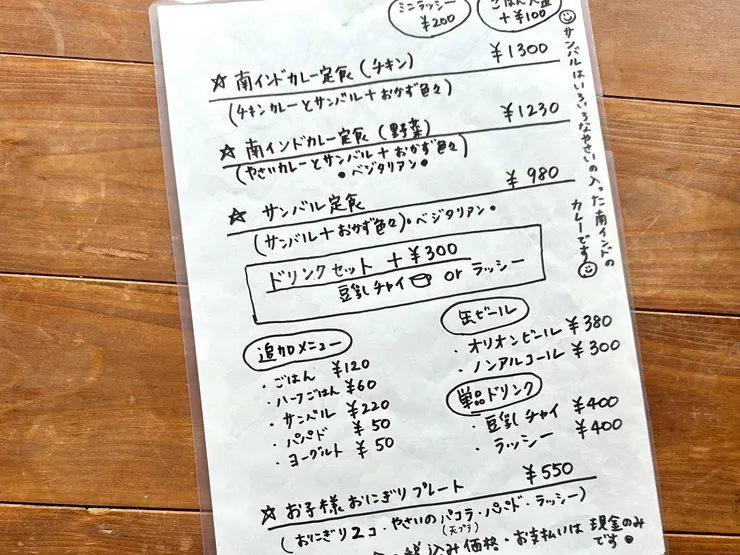 ミニラッシー
¥200
ごはん大盛
+¥100
☆ 南インドカレー定食(チキン) ¥1300
(チキンカレーとサンバル+おかず色々)
☆ 南インドカレー定食(野菜) ¥1230
(やさいカレーとサンバル+おかず色々)
•ベジタリアン•
☆ サンバル定食 ¥980
(サンバル+おかず色々)•ベジタリアン•
ドリンクセット +¥300
豆乳チャイ or ラッシー
追加メニュー
・ごはん ¥120
・ハーフごはん ¥60
・サンバル ¥220
・パパド ¥50
・ヨーグルト ¥50
缶ビール
・オリオンビール ¥380
・ノンアルコール ¥300
単品ドリンク
・豆乳チャイ ¥400
・ラッシー ¥400
☆ お子様おにぎりプレート ¥550
(おにぎり2コ・やさいのパコラ・パパド・ラッシー)
(天プラ)
税込み価格・お支払いは現金のみ
です
サンバルはいろいろなやさいの入った南インドの
カレーです